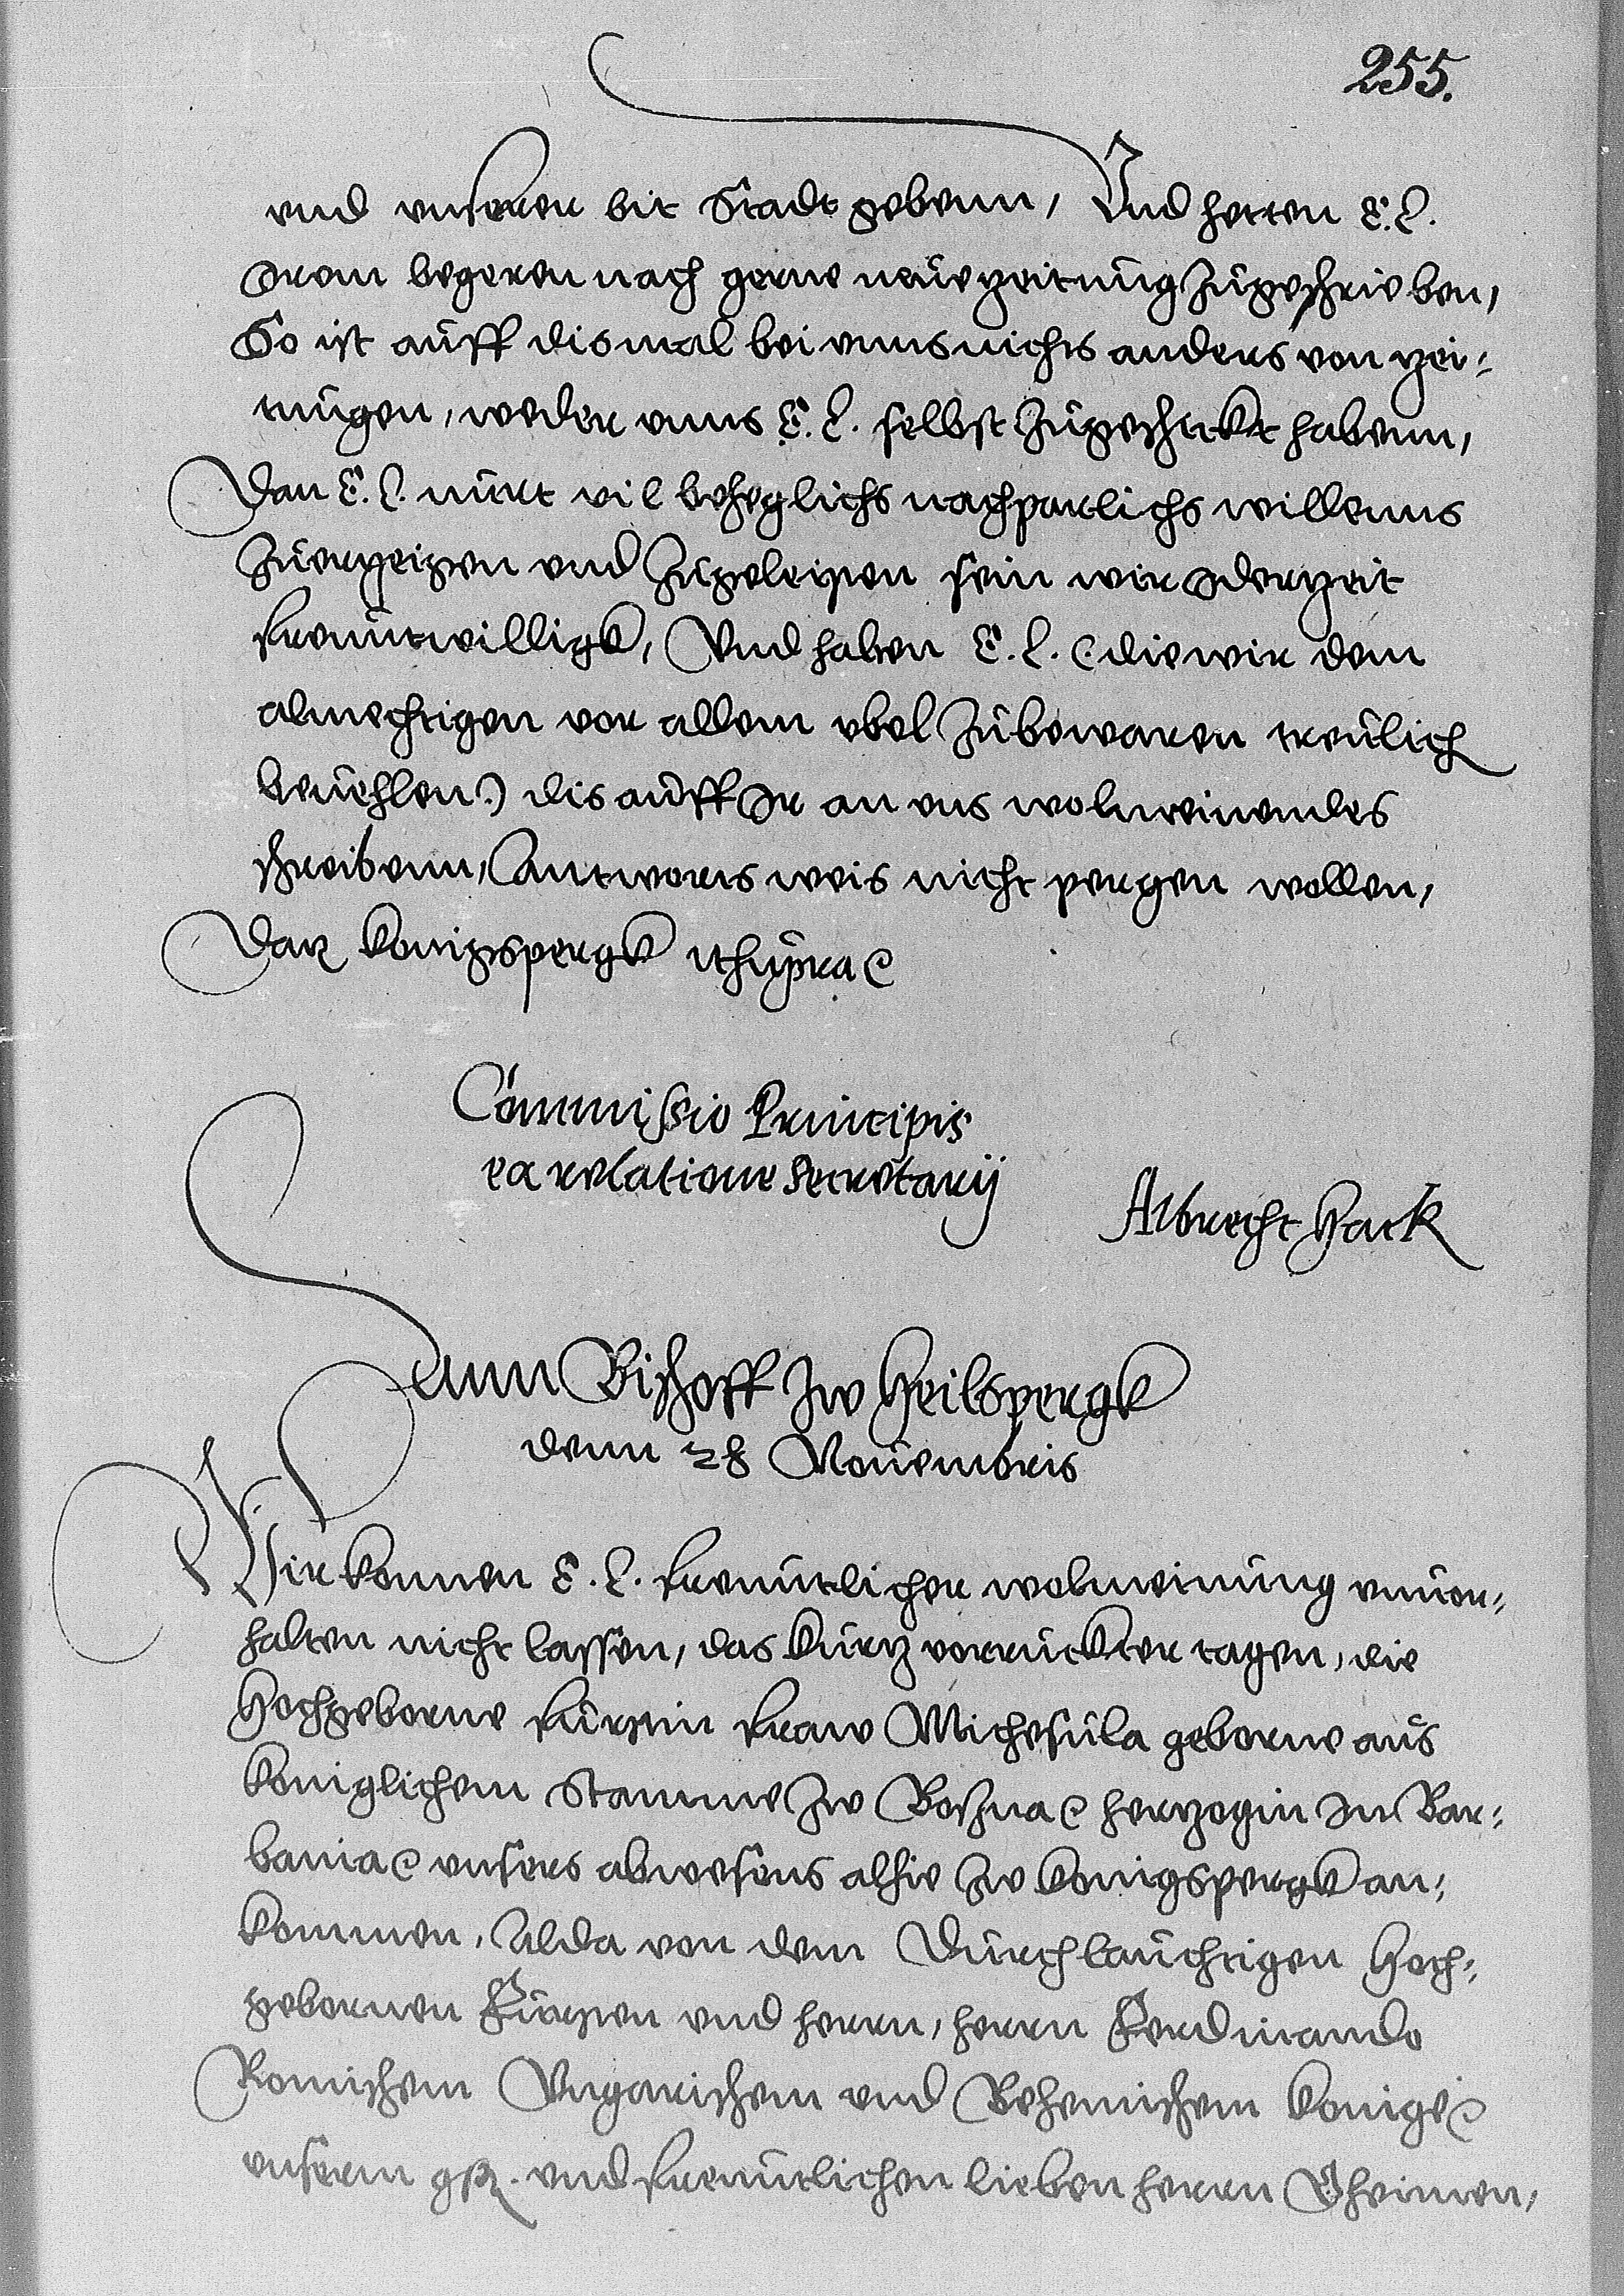 255.
vnd vnserer bit Stadt gebenn, Vnd hetten E. L.
irem begeren nach gerne neue zeitung zugeschrieben,
So ist auff dismal bei vnns nichts anders von zei-
tungen, weder vnns E. L. selbst zugeschickt habenn,
Dan E. L. nuhr vil beheglichs nachparlichs willenns
zuerzeigen vnd zugeleisten sein wir iderzeit
freuntwilligk, Vnd haben E. L. (die wir dem
almechtigen vor allem vbel zubewaren treulich
beuehlen) dis auff Ir an vns wolmeinendes
schreibenn, Antworts weis nicht pergen wollen,
Datum Konigspergk vt supra etc
Commissio Principis
ex relatione Secretarij
Albrecht Hack
Ann Bischoff zw Heilspergk
denn 28 Nouembris
Wir konnen E. L. freuntlicher wolmeinung vnuor-
halten nicht lassen, das kurtz vorruckter tagen, die
Hochgeborne furstin fraw Michesula geborne aus
koniglichem Stamme zw Boszna etc hertzogin in Bar-
bania etc vnsers abwesens alhie zw Konigspergk an-
kommen, Alda von dem Durchlauchtigen Hoch-
gebornen Fursten vnd herrn, herrn Ferdinando
Romischem Vngarischem vnd Behemischem Konige etc
vnserm gst. vnd freuntlichen lieben herrn Oheimen,